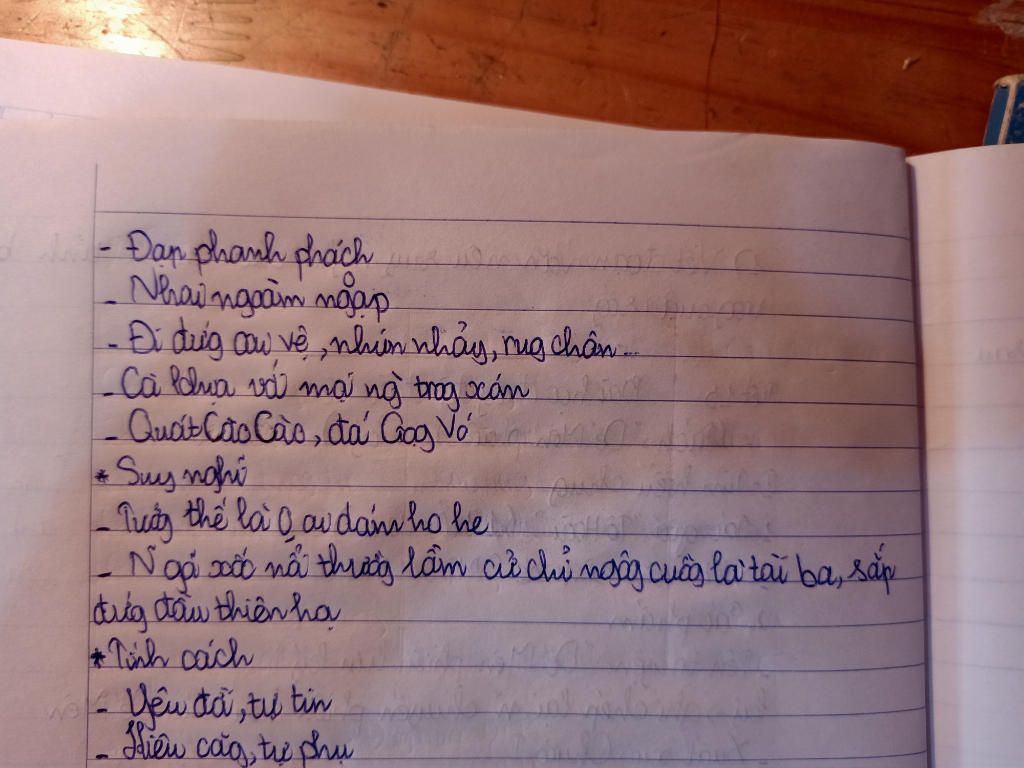 - Đạp phanh phách
- Nhai ngoàm ngoạp
- Đi đứg oai vệ, nhún nhảy, rug chân...
- Cà khịa với mọi ng` trog xóm
- Quát Cào Cào, đá Gọg Vó
* Suy nghĩ
- Tưởg thế là 0 ai dám ho he
- Ngôi xốc nổi thườg lầm cử chỉ ngôg cuồg là tài ba, sắp
đứg đầu thiên hạ
* Tính cách
- Yêu đời, tự tin
- Kiêu căg, tự phụ